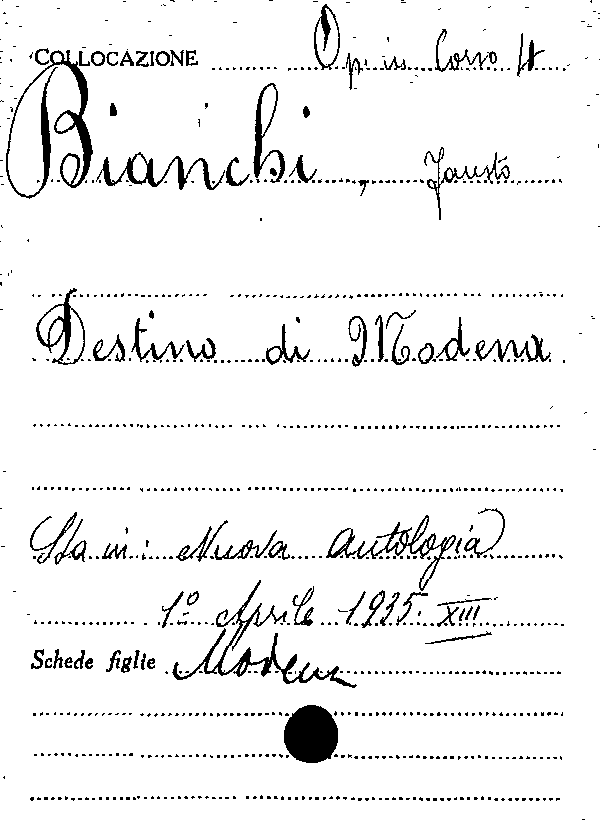 COLLOCAZIONE Op. in Corso It
Bianchi, Fausto
Destino di Modena
Sta in: Nuova Antologia
1º Aprile 1935. XIII
Schede figlie Modena